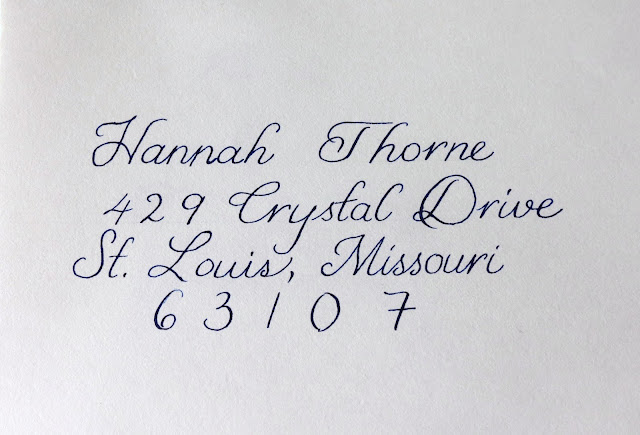 Hannah Thorne
429 Crystal Drive
St. Louis, Missouri
6 3 1 0 7